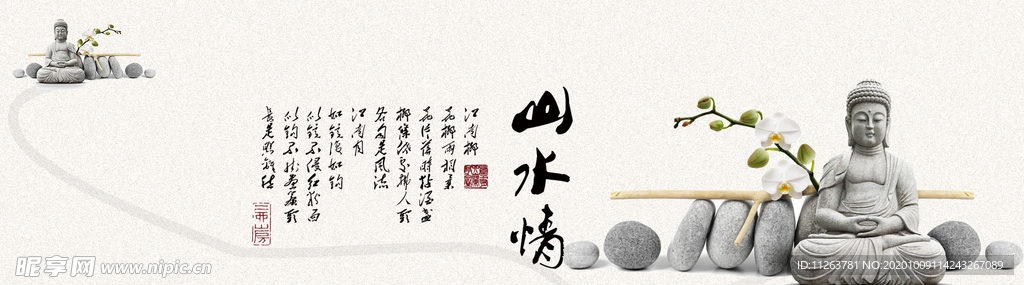 山水情
江南柳
花柳两相柔
花片落时黏酒盏
柳条低处拂人头
各自是风流
江南月
如镜复如钩
似镜不侵红粉面
似钩不挂画帘头
长是照离愁
昵享网 www.nipic.cn
ID:11263781 NO:20201009114243267089